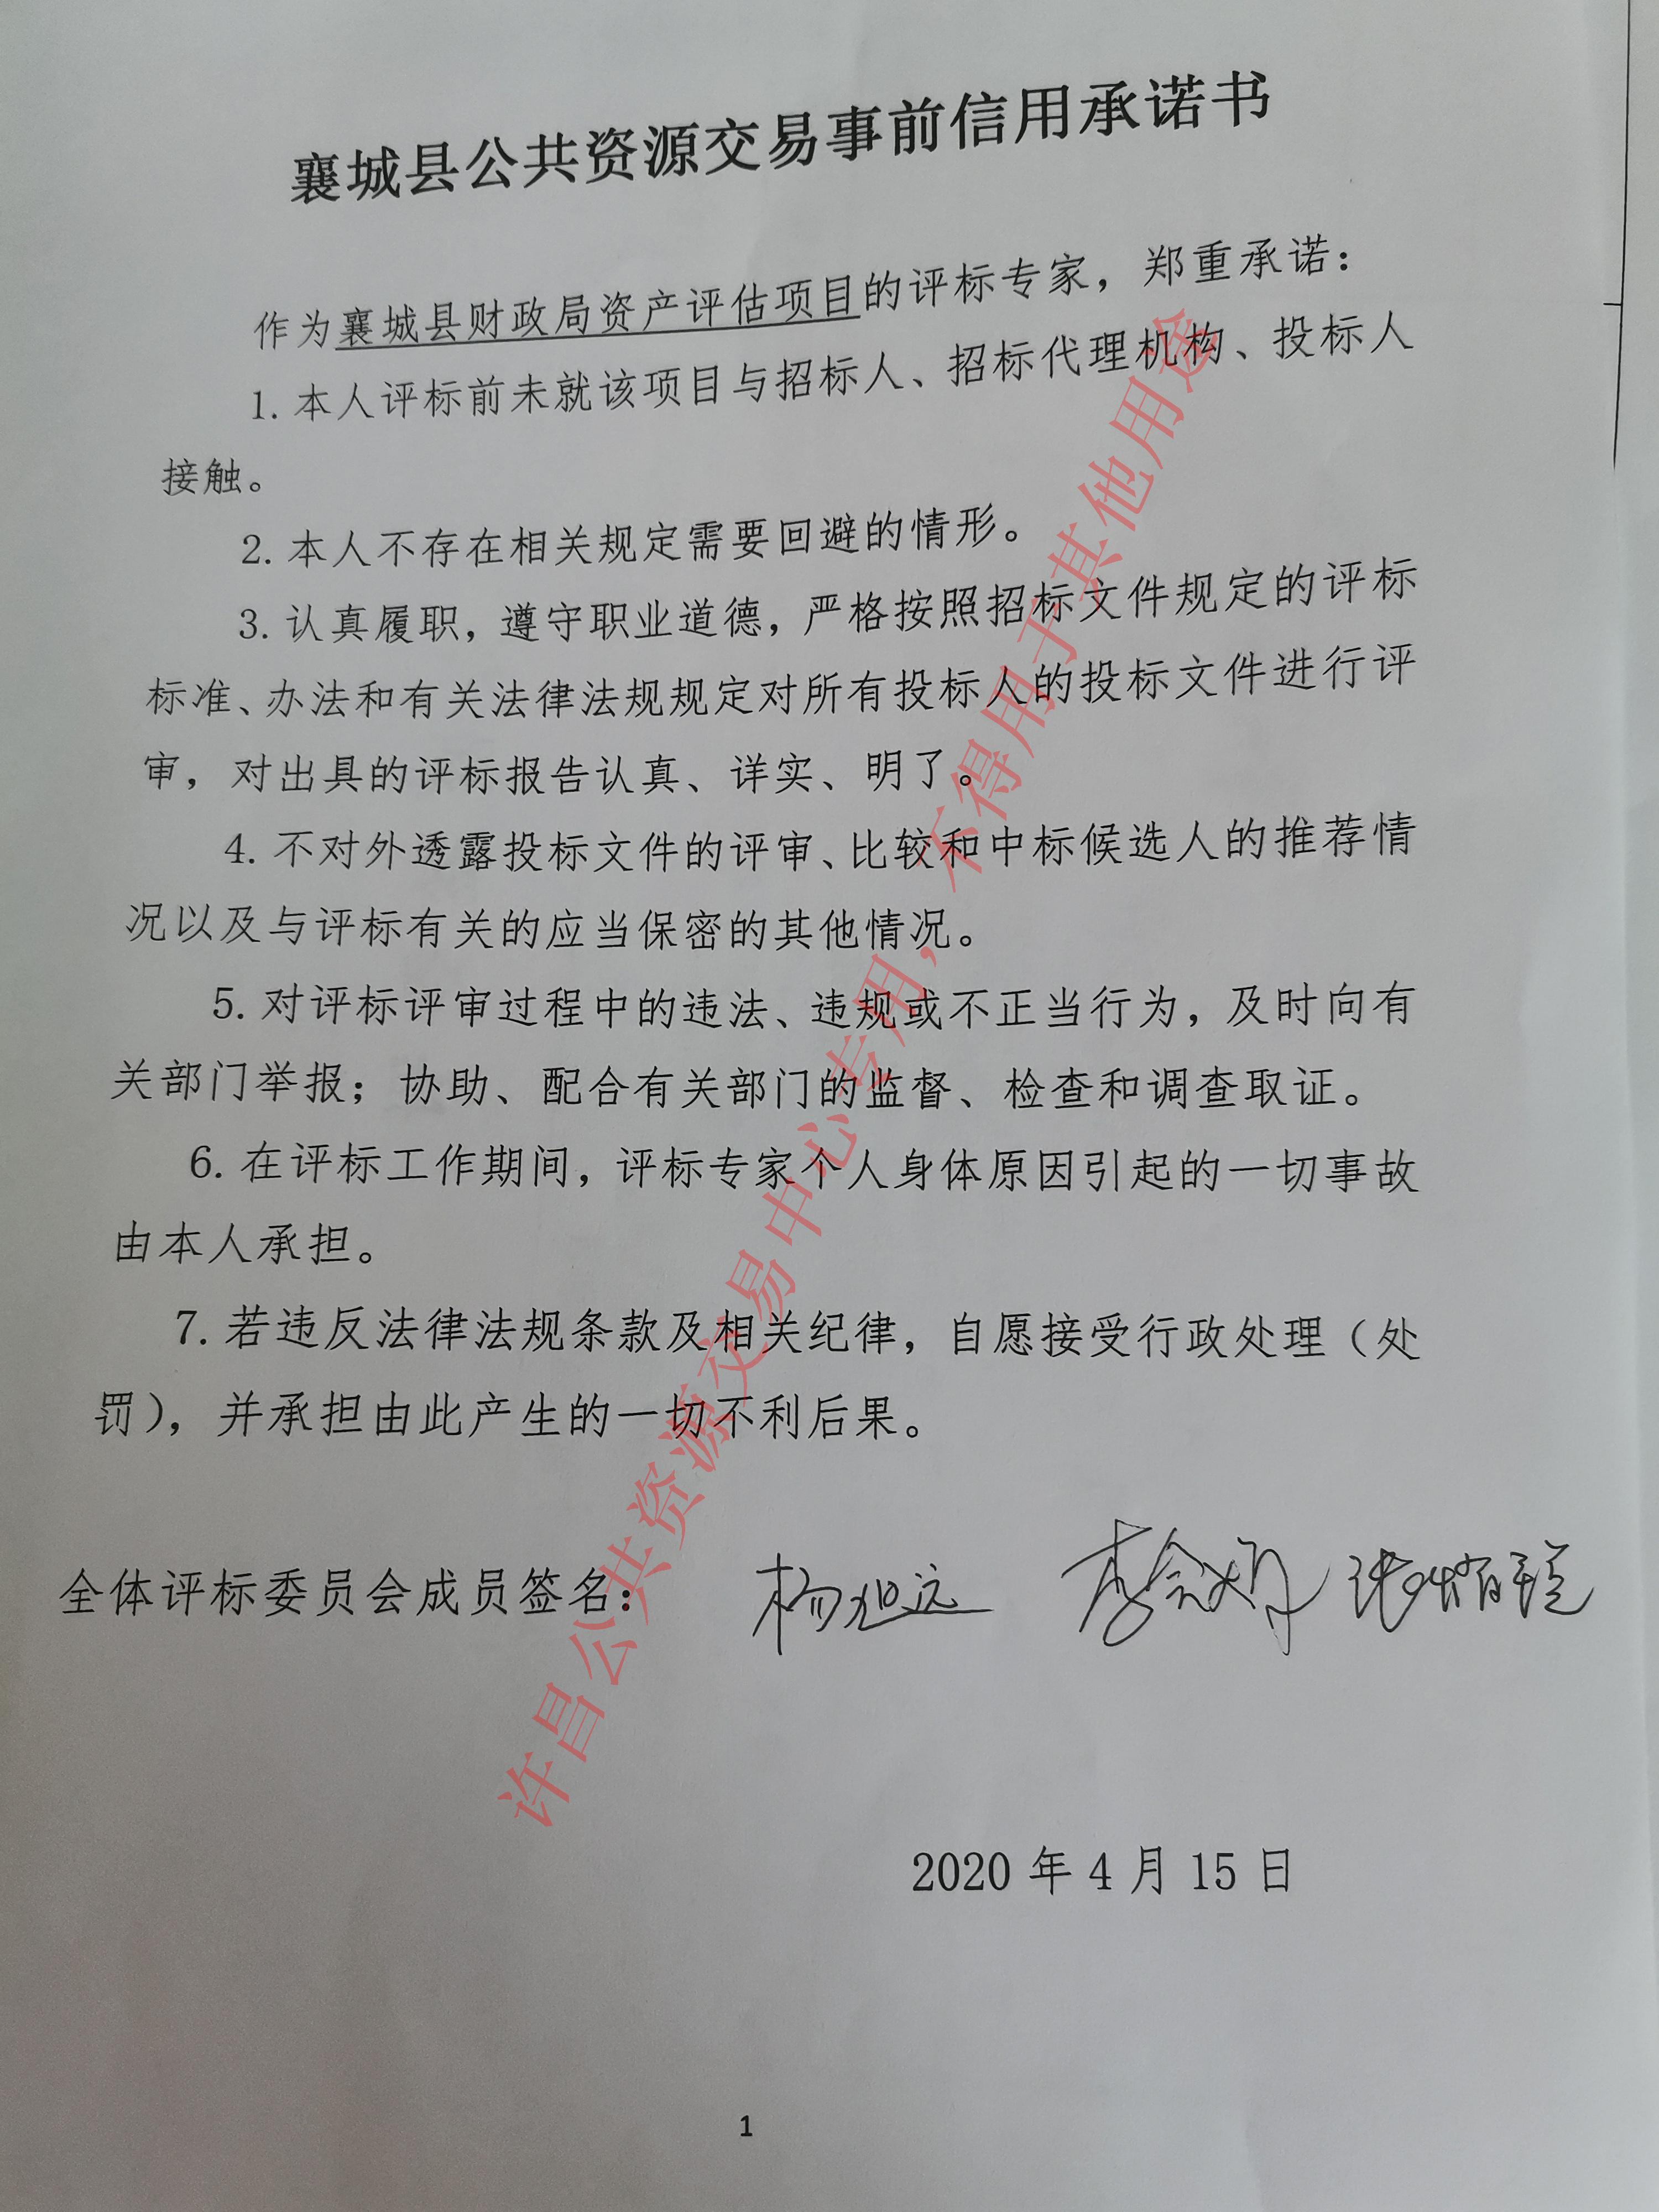 襄城县公共资源交易事前信用承诺书
作为襄城县财政局资产评估项目的评标专家，郑重承诺：
1. 本人评标前未就该项目与招标人、招标代理机构、投标人
接触。
2. 本人不存在相关规定需要回避的情形。
3. 认真履职，遵守职业道德，严格按照招标文件规定的评标
标准、办法和有关法律法规规定对所有投标人的投标文件进行评
审，对出具的评标报告认真、详实、明了。
4. 不对外透露投标文件的评审、比较和中标候选人的推荐情
况以及与评标有关的应当保密的其他情况。
5. 对评标评审过程中的违法、违规或不正当行为，及时向有
关部门举报；协助、配合有关部门的监督、检查和调查取证。
6. 在评标工作期间，评标专家个人身体原因引起的一切事故
由本人承担。
7. 若违反法律法规条款及相关纪律，自愿接受行政处理（处
罚），并承担由此产生的一切不利后果。
全体评标委员会成员签名： 杨旭远
2020 年 4 月 15 日
1
许昌公共资源交易中心专用，不得用于其他用途